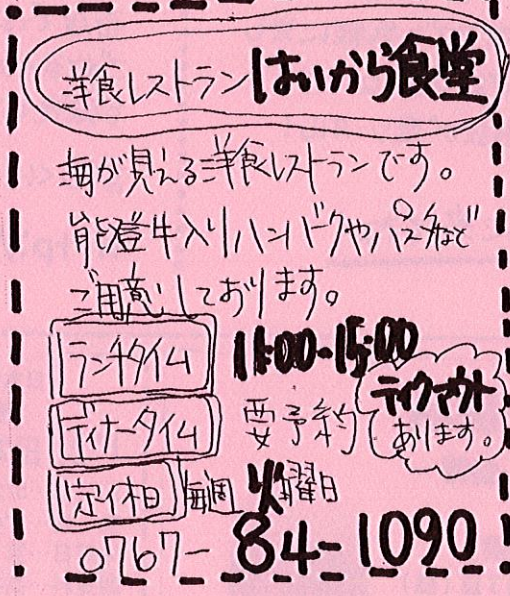 洋食レストラン はいから食堂
海が見える洋食レストランです。
能登牛入りハンバーグやパスタなど
ご用意しております。
ランチタイム 11:00-15:00
ディナータイム 要予約
テイクアウト
あります。
定休日 毎週 火曜日
0767-84-1090